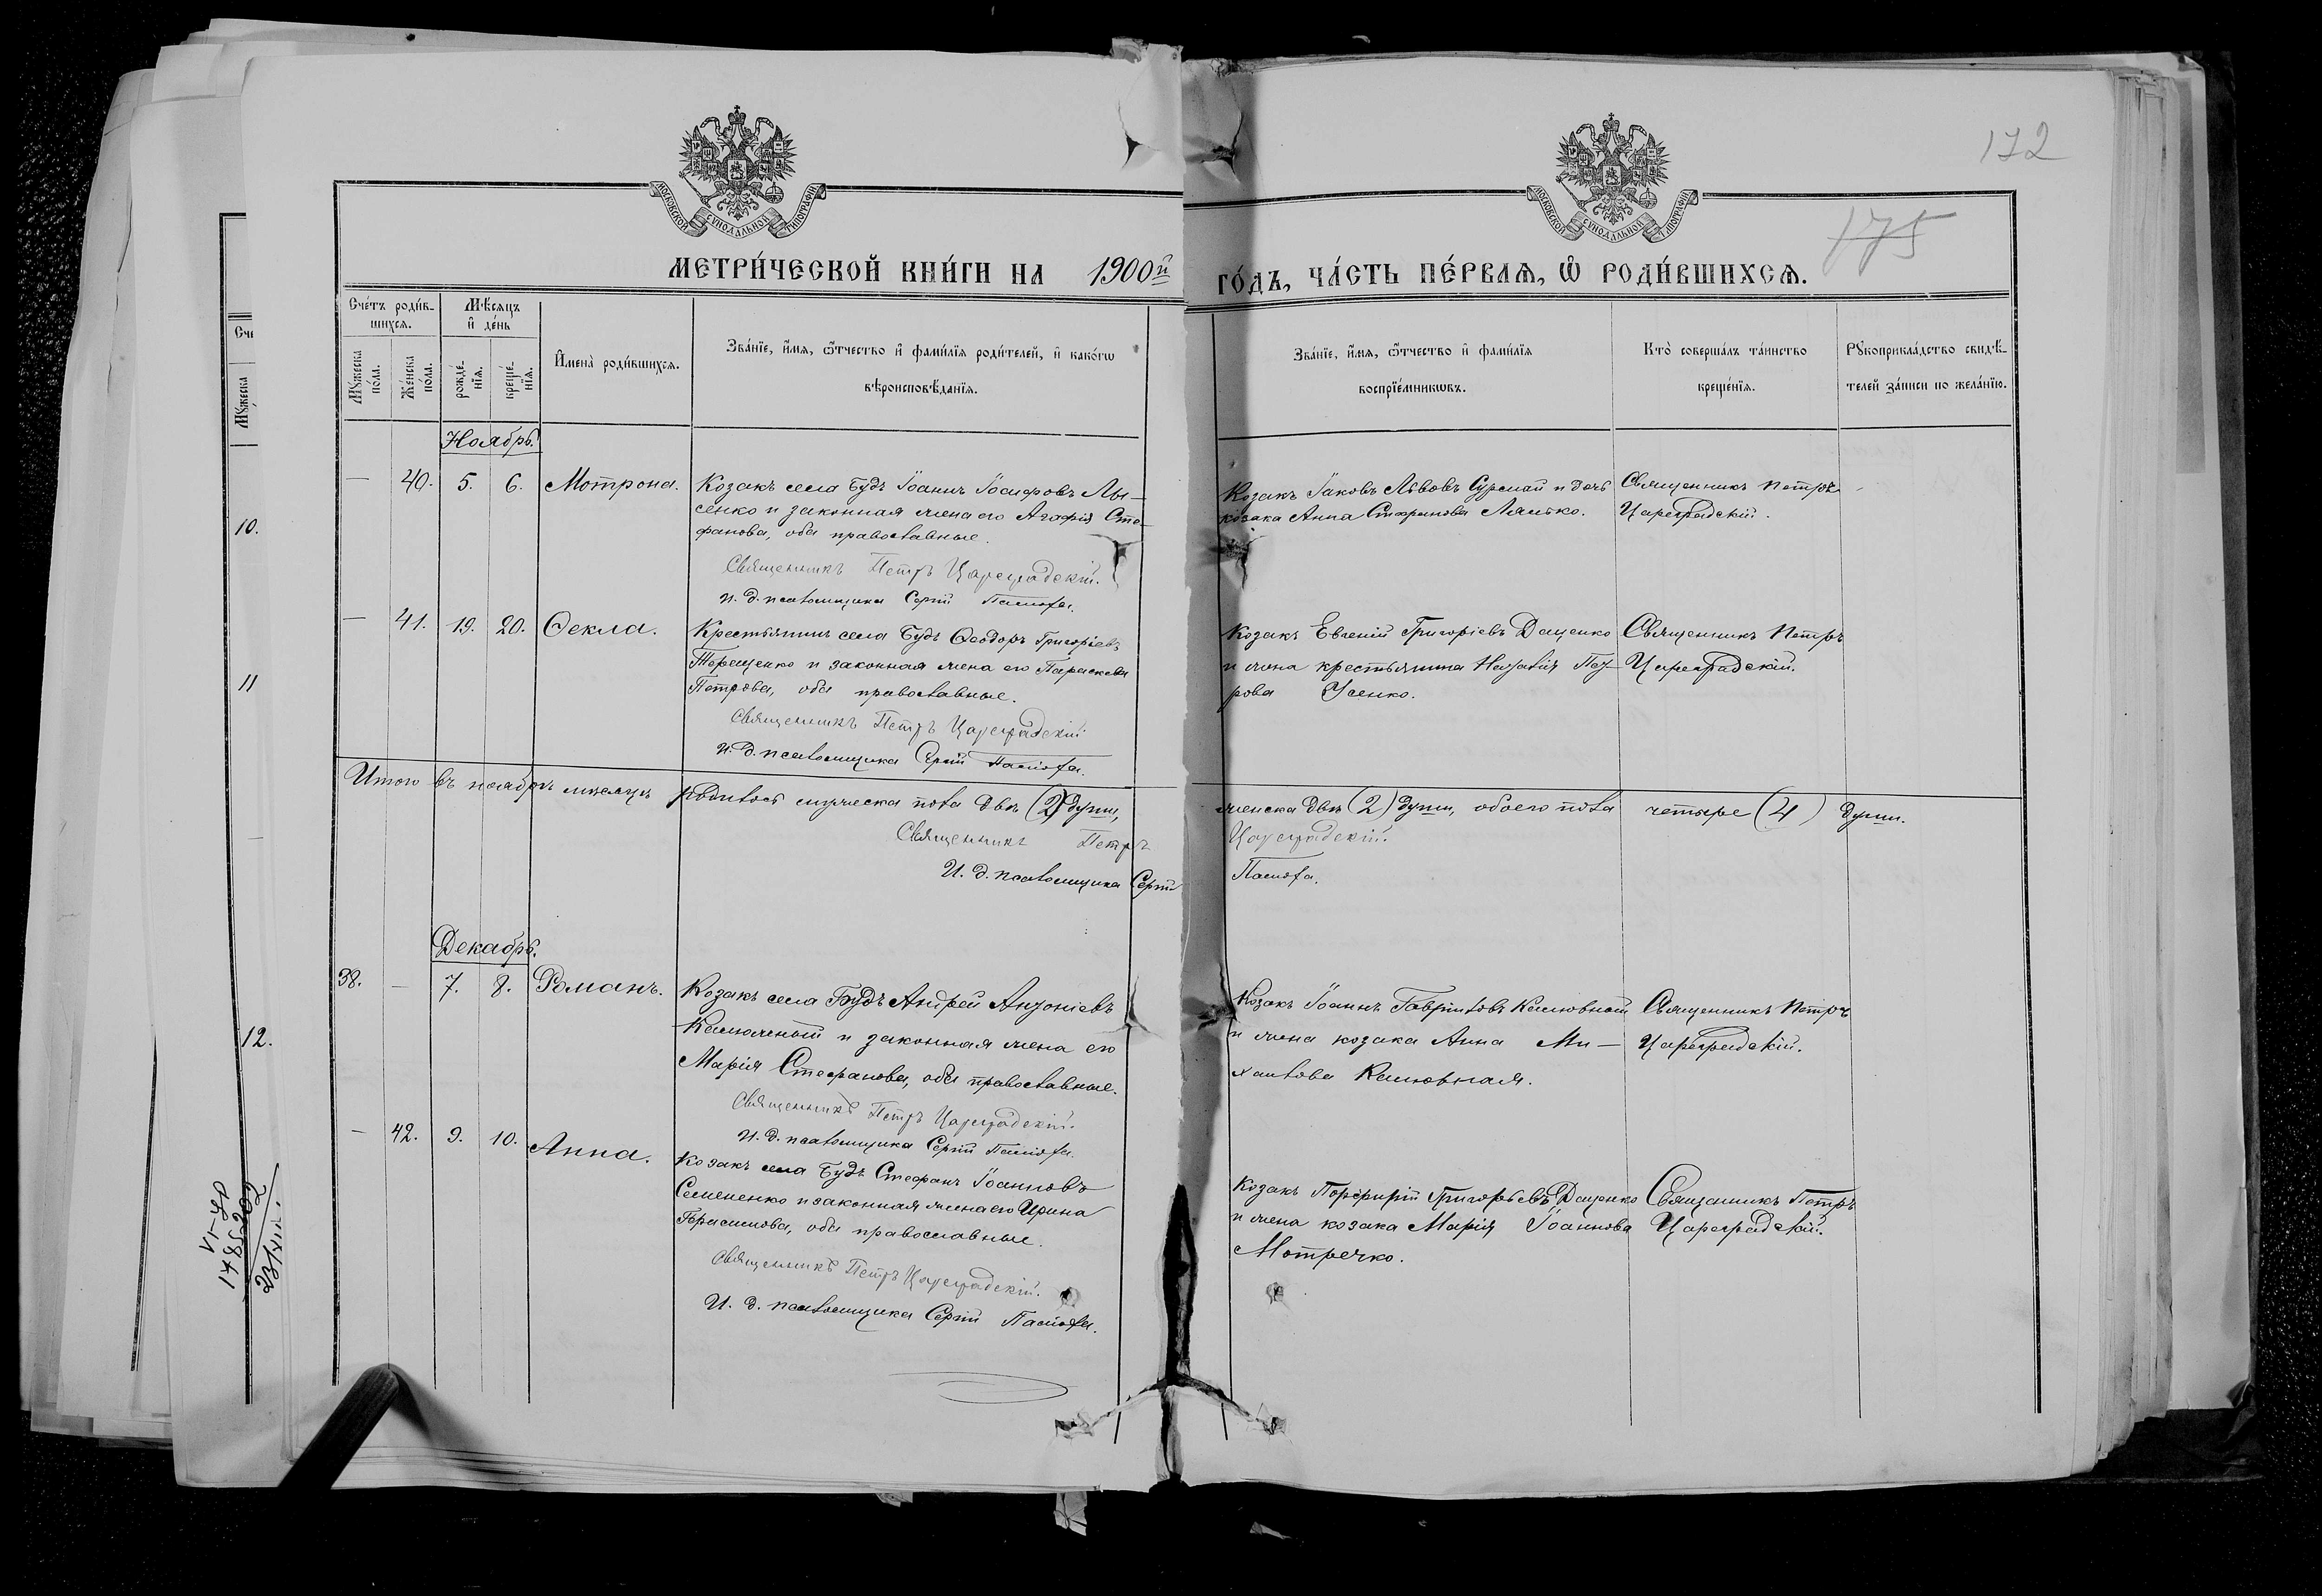 172
175
МОСКОВСКОЙ СУНОДАЛЬНОЙ ТИПОГРАФІИ
МОСКОВСКОЙ СУНОДАЛЬНОЙ ТИПОГРАФІИ
МЕТРИ́ЧЕСКОЙ КНИ́ГИ НА 1900й ГО́ДЪ, ЧА́СТЬ ПЕ́РВАѦ, Ѡ РОДИ́ВШИХСѦ.
Сче́тъ роди́в-
шихсѧ.
Мѣ́сѧцъ
и де́нь
Мꙋ́жеска
по́ла.
Же́нска
по́ла.
рожде́-
нїѧ.
креще́-
нїѧ.
Имена̀ роди́вшихсѧ.
Зва́нїе, и́мѧ, ѻ́тчество и фами́лїѧ роди́телей, и како́гѡ
вѣроисповѣ́данїѧ.
Зва́нїе, и́мѧ, ѻ́тчество и фами́лїѧ
воспрїе́мникѡвъ.
Кто̀ соверша́лъ та́инство
креще́нїѧ.
Рꙋкоприкла́дство свидѣ́-
телей за́писи по жела́нїю.
Ноябрь.
— 40. 5. 6. Мотрона. Козакъ села Будъ Іоаннъ Іосифовъ Лы-
сенко и законная жена его Агафія Сте-
фанова, оба православные.
Священникъ Петръ Цареградскій.
и. д. псаломщика Сергій
Козакъ Іаковъ Львовъ и дочь
козака Анна Стефанова
Священникъ Петръ
Цареградскій.
— 41. 19. 20. Ѳекла. Крестьянинъ села Будъ Ѳеодоръ Григоріевъ
Терещенко и законная жена его Параскева
Петрова, оба православные.
Священникъ Петръ Цареградскій
и. д. псаломщика Сергій
Козакъ Евгеній Григоріевъ Даценко
и жена крестьянина Наталія
Усенко.
Священникъ Петръ
Цареградскій.
Итого въ ноябрѣ мѣсяцѣ родилось мужеска пола двѣ (2) души, женска двѣ (2) души, обоего пола четыре (4) души.
Священникъ Петръ Цареградскій.
И. д. псаломщика Сергій
Декабрь.
38. — 7. 8. Романъ. Козакъ села Будъ Андрей Антоніевъ
и законная жена его
Марія Стефанова, оба православные.
Священникъ Петръ Цареградскій.
и. д. псаломщика Сергій
Козакъ Іоаннъ Гавріиловъ
и жена козака Анна Ми-
хаилова
Священникъ Петръ
Цареградскій.
— 42. 9. 10. Анна. Козакъ села Будъ Стефанъ Іоанновъ
Семененко и законная жена его Ирина
Герасимова, оба православные.
Священникъ Петръ Цареградскій.
И. д. псаломщика Сергій
Козакъ Порфирій Григорьевъ Даценко
и жена козака Марія Іоаннова
Мотречко.
Священникъ Петръ
Цареградскій.
Мꙋжеска
10.
11
12.